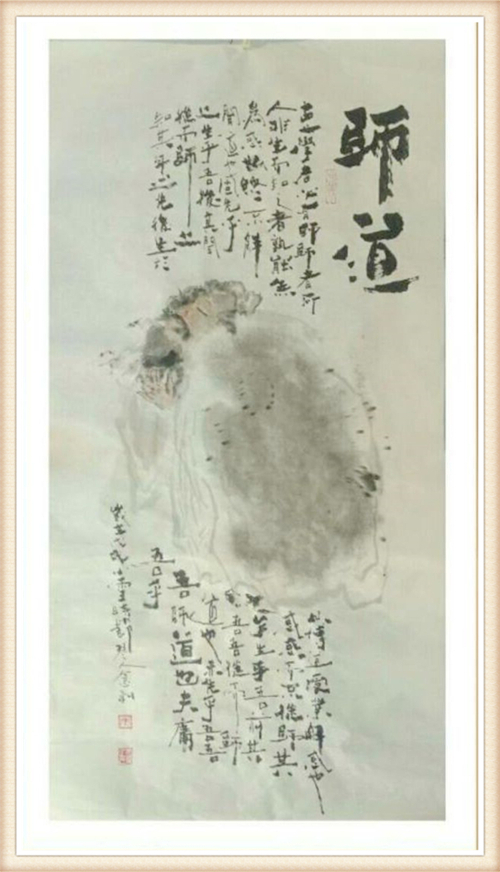 師道
古之學者必有師師者所
以傳道受業解惑也
人非生而知之者孰能無
惑惑而不從師其
為惑也終不解
矣生乎吾前其
聞道也固先乎
吾吾從而師
之生乎吾後其聞
道也亦先乎吾吾
從而師之
吾師道也夫庸
知其年之先後生於
吾乎
戊戌小雪